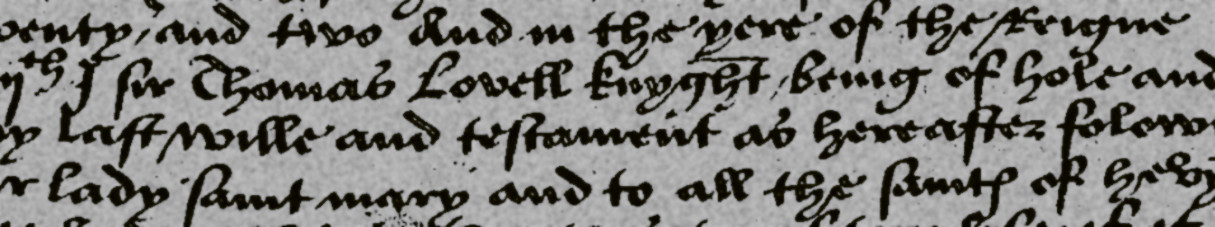 and two And in the yere of the Reigne
I sir Thomas Lovell knyght being of hole and
last wille and testament as hereafter
lady saint mary and to all the saints of